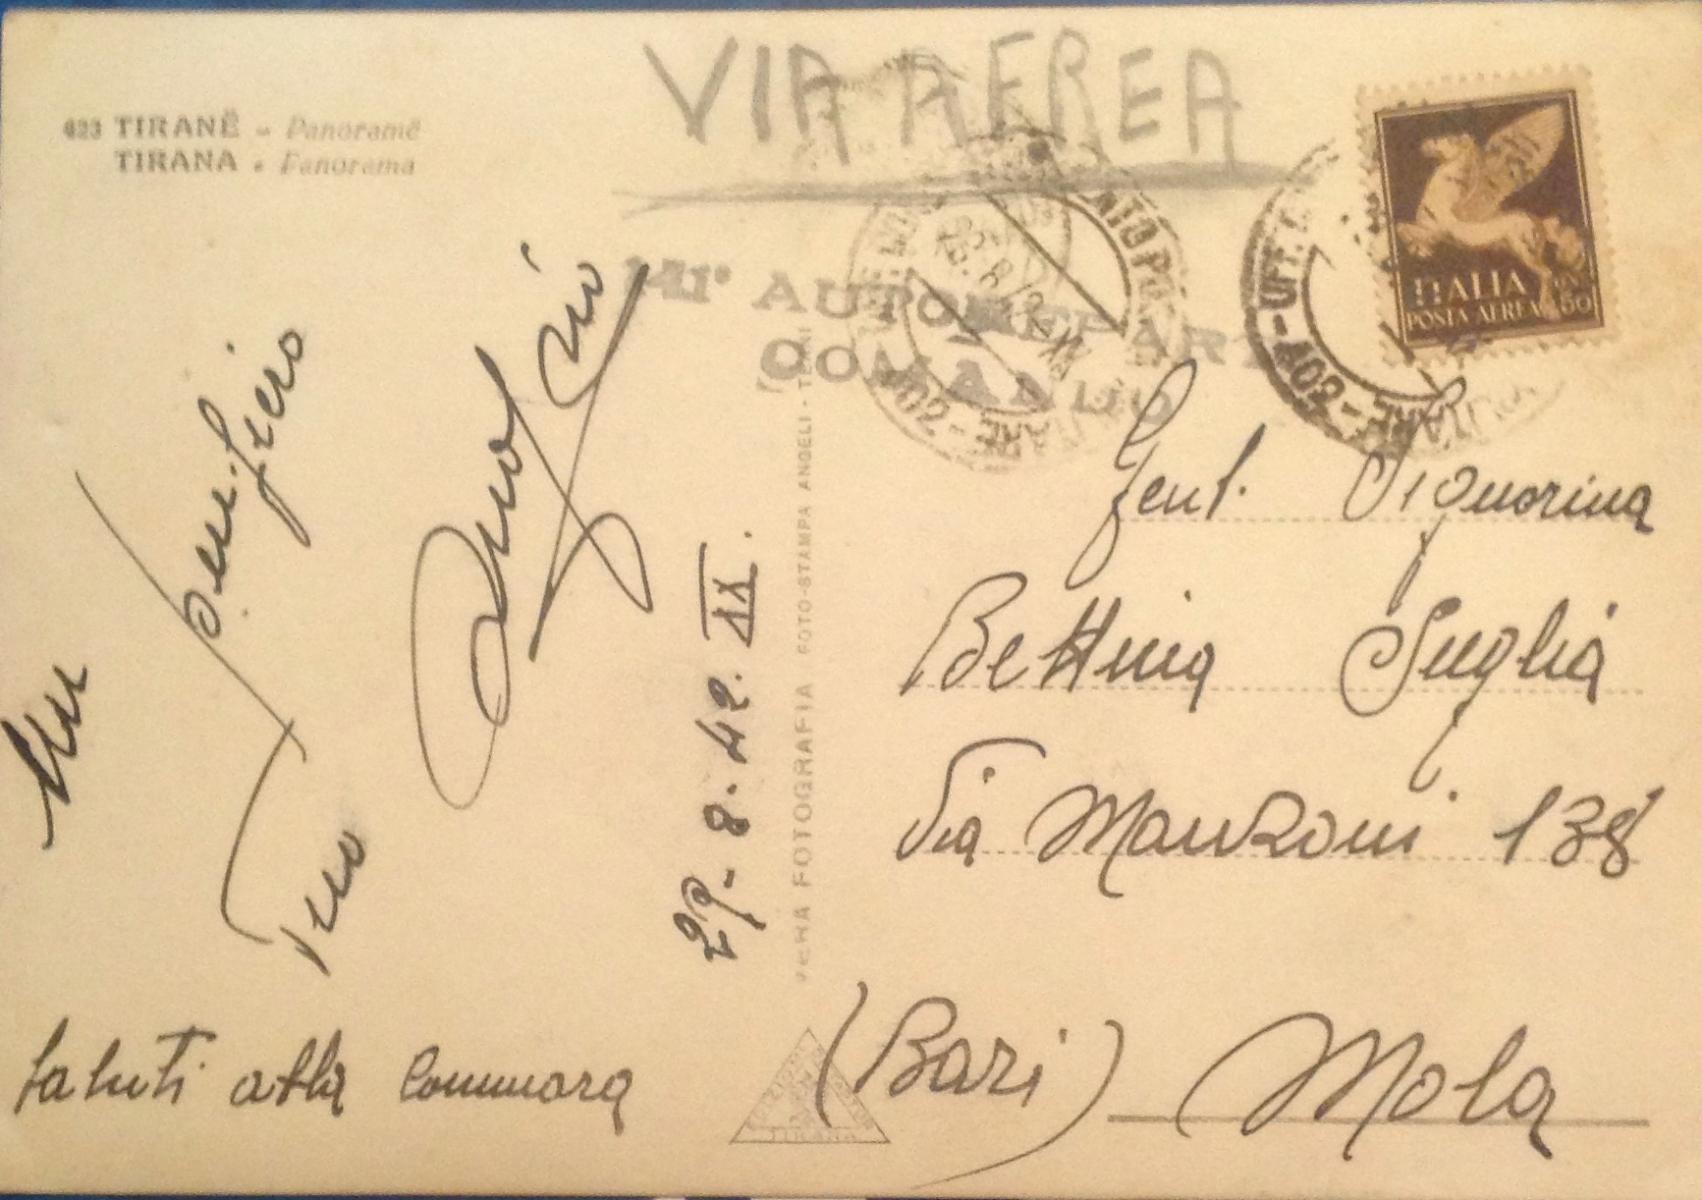 VIA AEREA
623 TIRANË - Panoramë
TIRANA - Panorama
ITALIA
POSTA AEREA 50
COMANDO
Un pensiero
Tuo
29-8-42. XX.
VERA FOTOGRAFIA FOTO-STAMPA ANGELI - TERNI
Gent. Signorina
Bettina Suglia
Via Manzoni 138
(Bari) Mola
Saluti alla commara
TIRANA